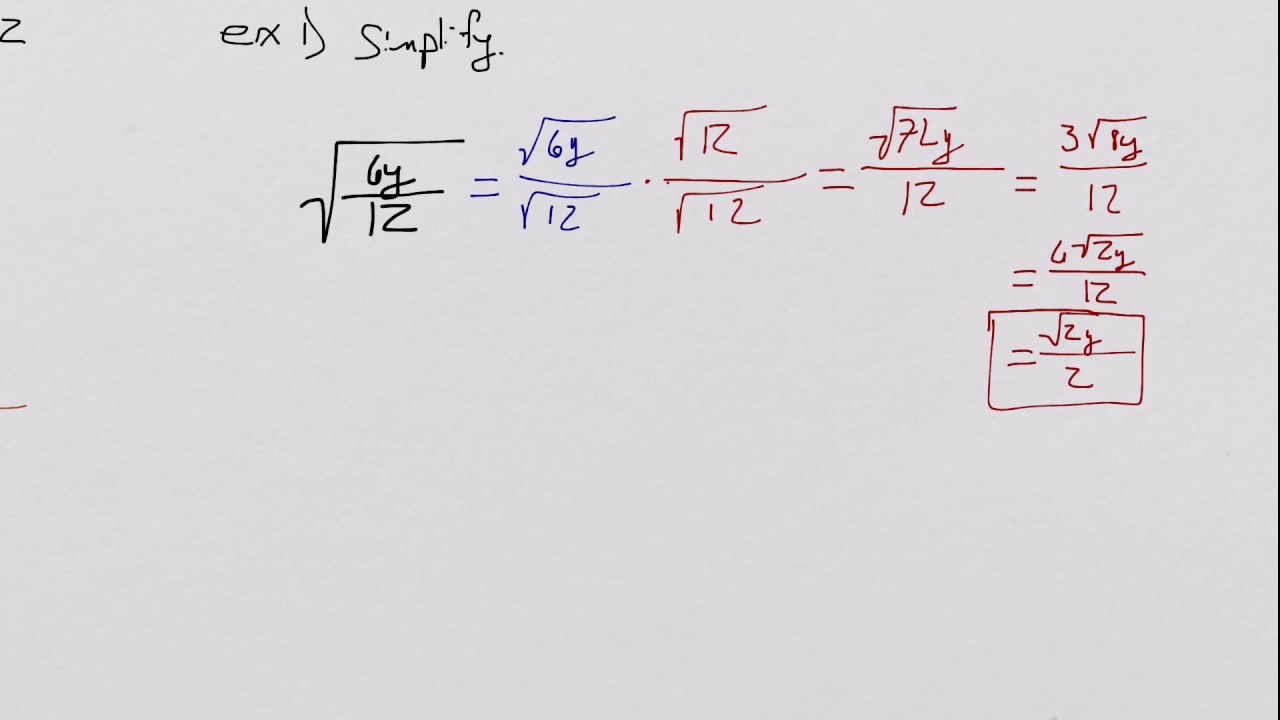 2 ex 1) Simplify.
√(6y/12) = √6y/√12 · √12/√12 = √72y/12 = 3√8y/12
= 6√2y/12
= √2y/2